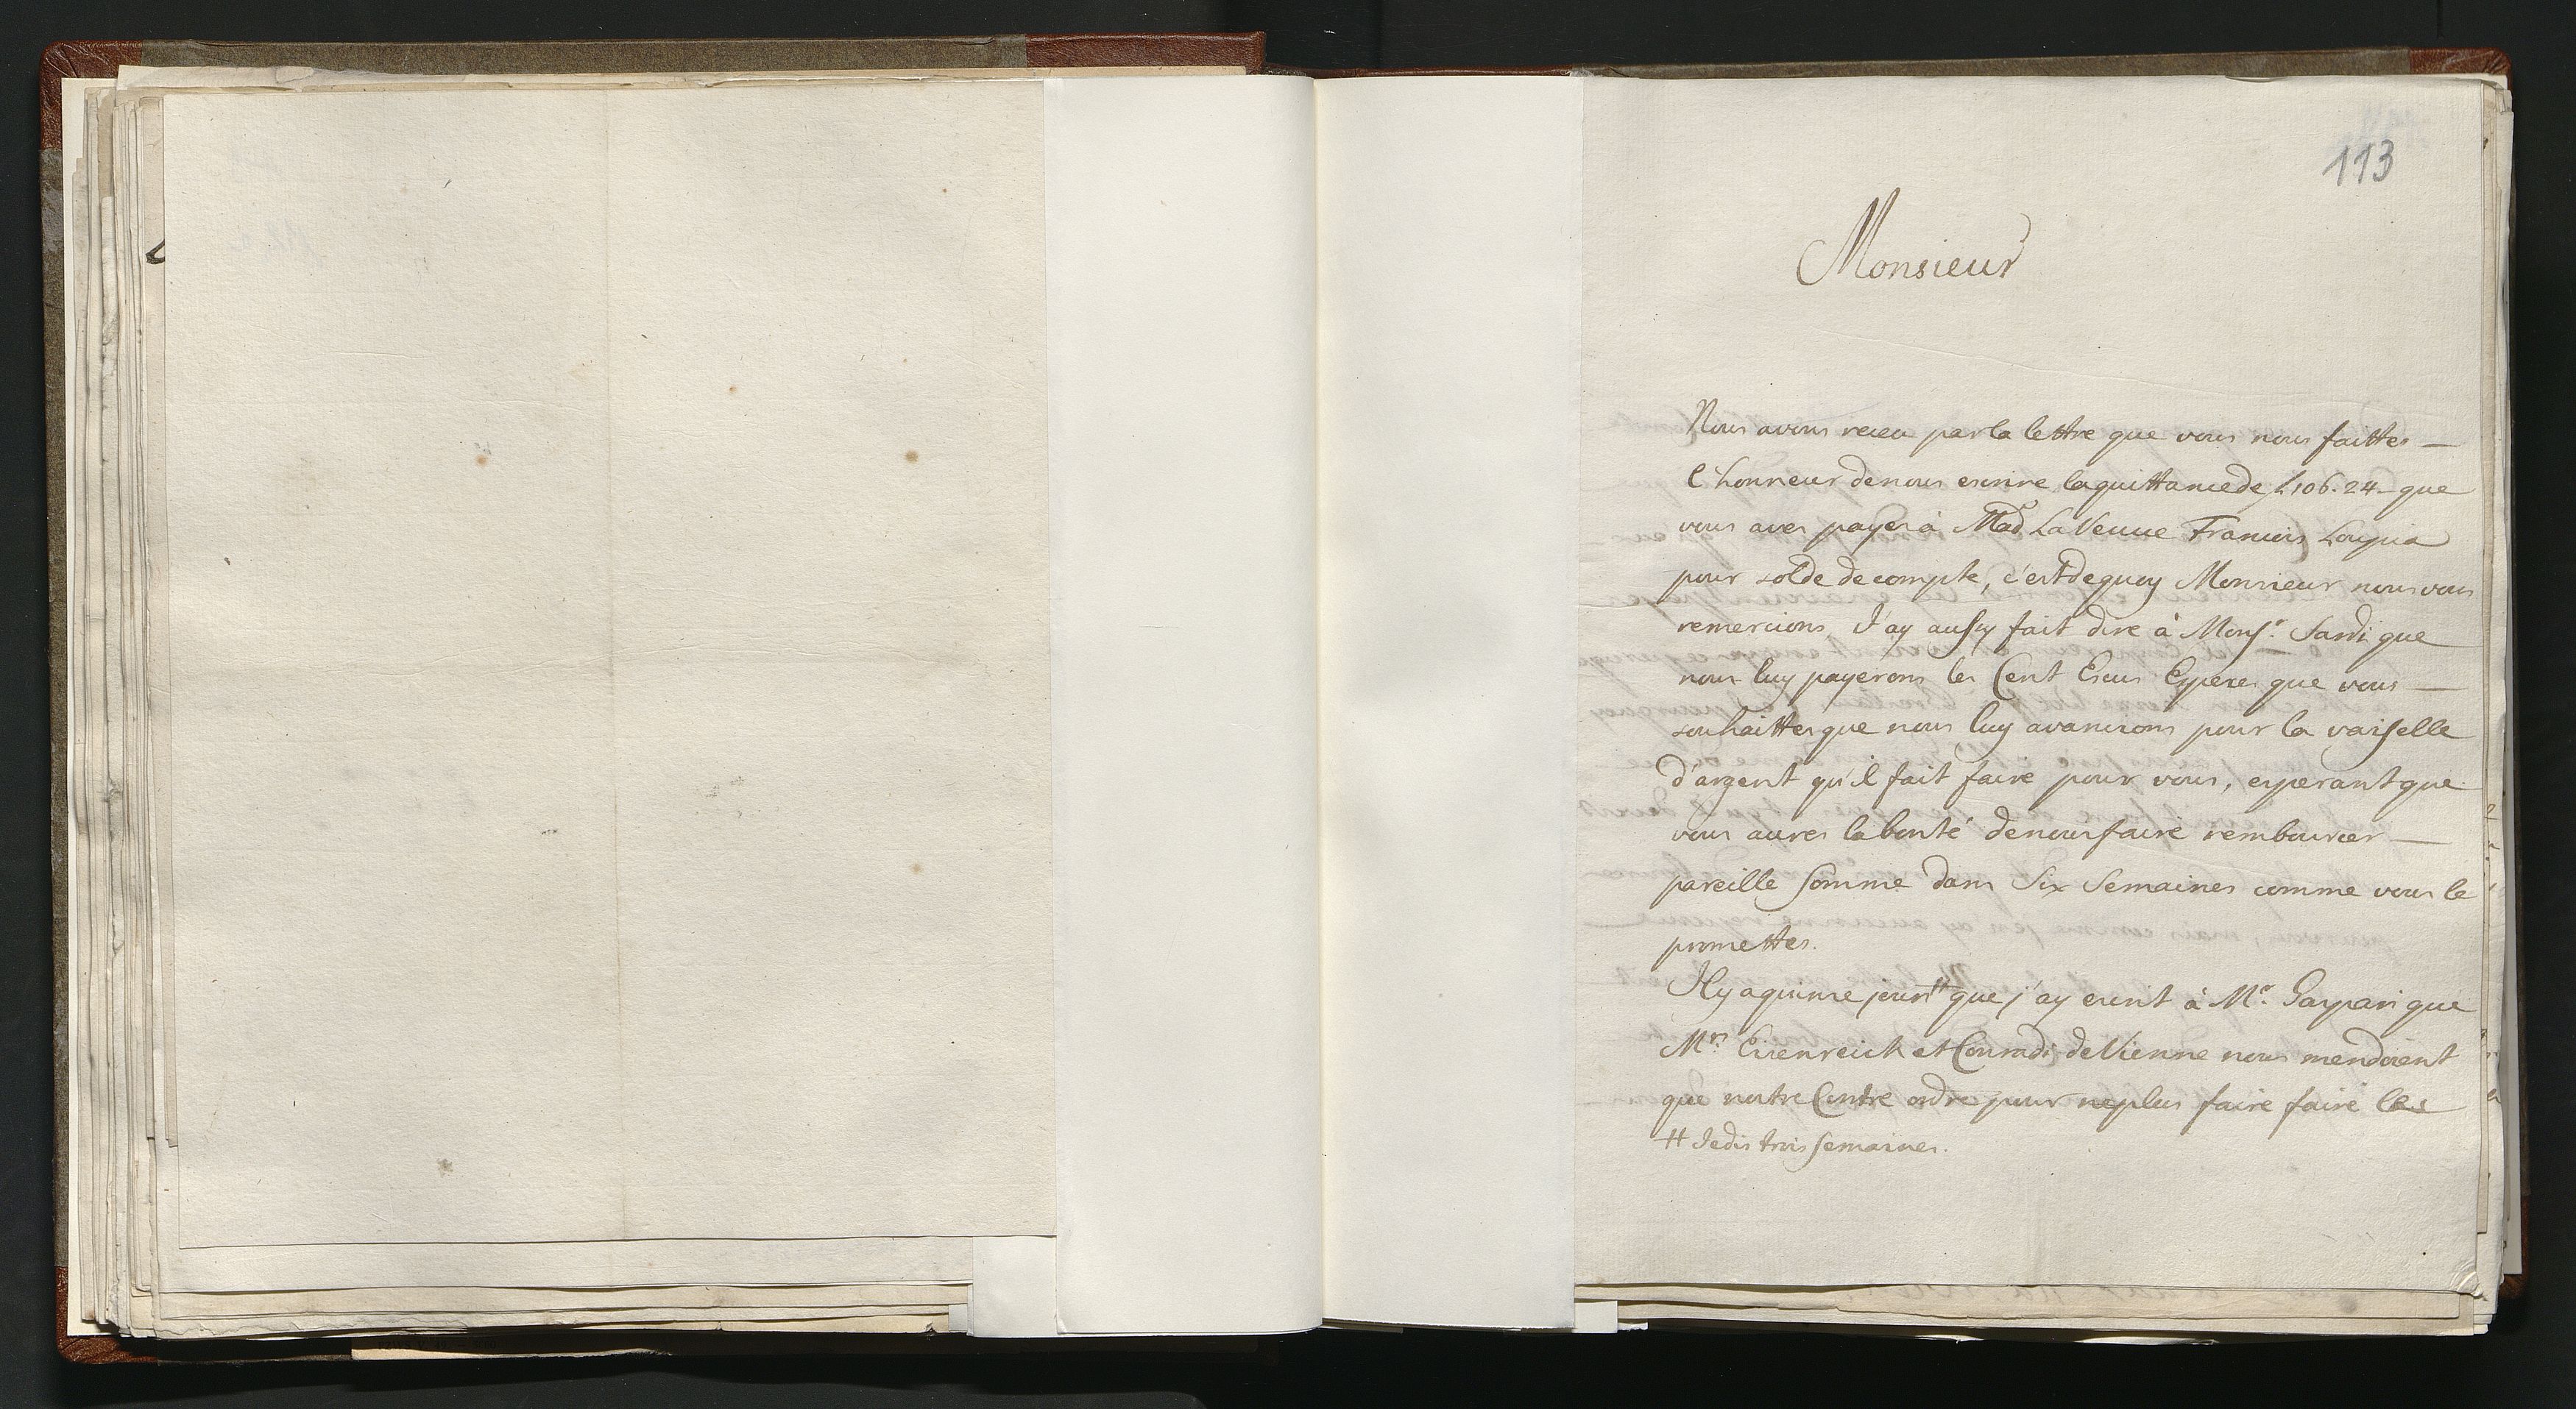 113
Monsieur
Nous avons receu par la lettre que vous nous faittes
l'honneur de nous escrire la quittance de £106.24 que
vous aves payes à Mad.e La Veuve Francois
pour solde de compte, c'est de quoy Monsieur nous vous
remercions, J'ay aussy fait dire à Mons.r Sardi que
nous luy payerons les Cent Escus Especes que vous
souhaittes que nous luy avancions pour la vaisselle
d'argent qu'il fait faire pour vous, esperant que
vous aures la bonté de nous faire rembourcer
pareille somme dans Six Semaines comme vous le
promettes.
Il y a quinse jours # que j'ay escrit à M.r Gaspari que
M.rs Eisenreich et Conradi de Vienne nous mendoient
que nostre Contre ordre pour ne plus faire faire les
# Je dis trois semaines.